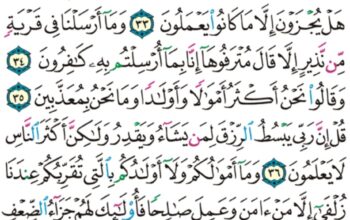 هَلْ يُجْزَوْنَ إِلَّا مَا كَانُوا۟ يَعْمَلُونَ ٣٣ وَمَآ أَرْسَلْنَا فِى قَرْيَةٍ
مِّن نَّذِيرٍ إِلَّا قَالَ مُتْرَفُوهَآ إِنَّا بِمَآ أُرْسِلْتُم بِهِۦ كَـٰفِرُونَ ٣٤
وَقَالُوا۟ نَحْنُ أَكْثَرُ أَمْوَٰلًا وَأَوْلَـٰدًا وَمَا نَحْنُ بِمُعَذَّبِينَ ٣٥
قُلْ إِنَّ رَبِّى يَبْسُطُ ٱلرِّزْقَ لِمَن يَشَآءُ وَيَقْدِرُ وَلَـٰكِنَّ أَكْثَرَ ٱلنَّاسِ
لَا يَعْلَمُونَ ٣٦ وَمَآ أَمْوَٰلُكُمْ وَلَآ أَوْلَـٰدُكُم بِٱلَّتِى تُقَرِّبُكُمْ عِندَنَا
زُلْفَىٰٓ إِلَّا مَنْ ءَامَنَ وَعَمِلَ صَـٰلِحًا فَأُو۟لَـٰٓئِكَ لَهُمْ جَزَآءُ ٱلضِّعْفِ